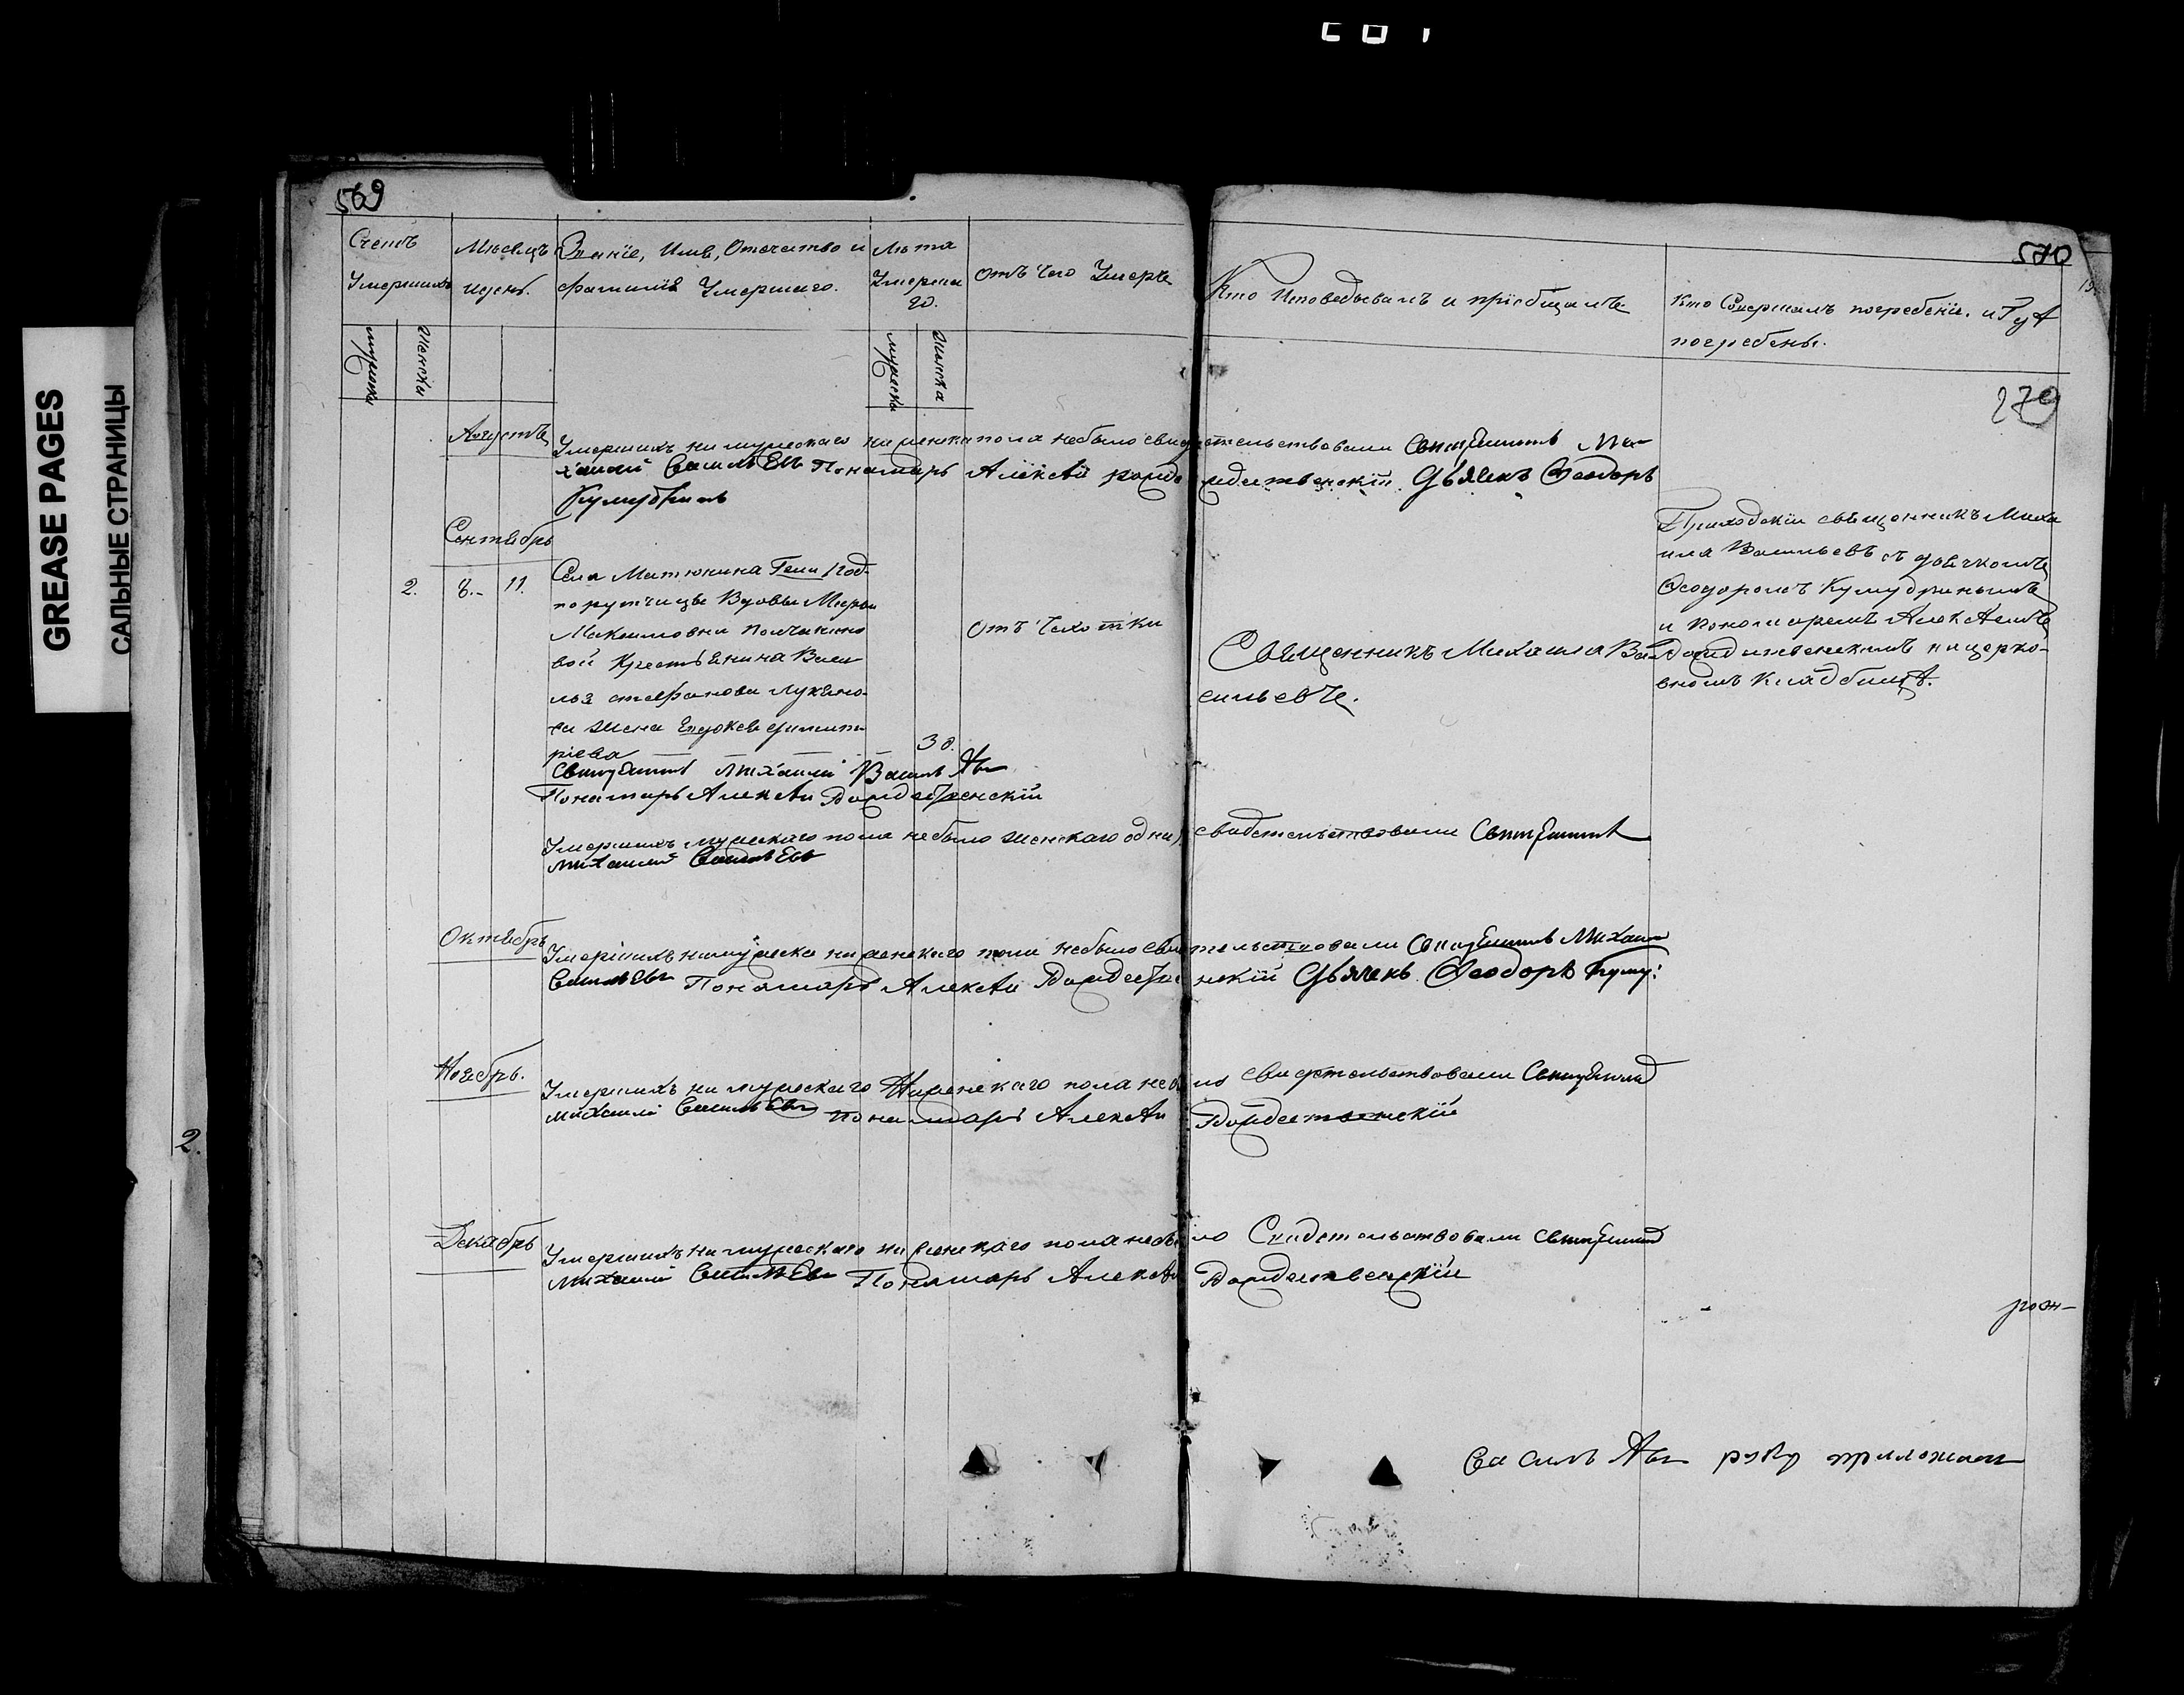 569
Счетъ Умершихъ
Мѣсяцъ и день.
Званіе, Имя, Отечество и фамилія Умершаго.
Лѣта Умершаго.
Отъ чего Умеръ
мужеска
женска
мужеска
женска
Кто Исповедывалъ и пріобщалъ
Кто Совершалъ погребеніе. и Гдѣ
погребены.
570
279
GREASE PAGES
САЛЬНЫЕ СТРАНИЦЫ
Августъ
Умершихъ ни мужескаго ни женска пола небыло свидетельствовали Священникъ Ми
хаилъ Васильевъ Пономарь Алексѣй Рождественскій Дьячекъ Феодоръ
Сентябрь
2. 8.- 11.
Села Матюнина Гжи Под
порутчицы Вдовы Марьи
Максимовны
вой Крестьянина Васи
лья Стефанова Лукяно
ва жена Евдокея Димит
ріева
30.
Отъ Чахотки
Священникъ Михаила Ва
сильевъ.
Приходскіи священникъ Миха
ила Васильевъ съ дьячкомъ
Феодоромъ Кумудринымъ
и пономаремъ Алексѣемъ
Рождественскимъ на церко-
вномъ кладбищѣ.
Священникъ Михаилъ Васильевъ
Пономарь Алексѣи Рождественскій
Умершихъ мужескаго пола небыло женскаго одна, свидетельствовали Священникъ
Михаилъ Васильевъ
Октябрь
Умершихъ ни мужеска ни женскаго пола небыло свидетельствовали Священникъ Михаилъ
Васильевъ Пономарь Алексѣи Рождественскій Дьячекъ Феодоръ Куму:
Ноябрь.
Умершихъ ни мужескаго Ни женскаго пола небыло свидетельствовали Священникъ
Михаилъ Васильевъ Пономарь Алексѣи Рождественскій
2.
Декабрь
Умершихъ ни мужескаго ни женскаго пола небыло Свидетельствовали Священникъ
Михаилъ Васильевъ Пономарь Алексѣи Рождественскій
Васильевъ руку приложилъ